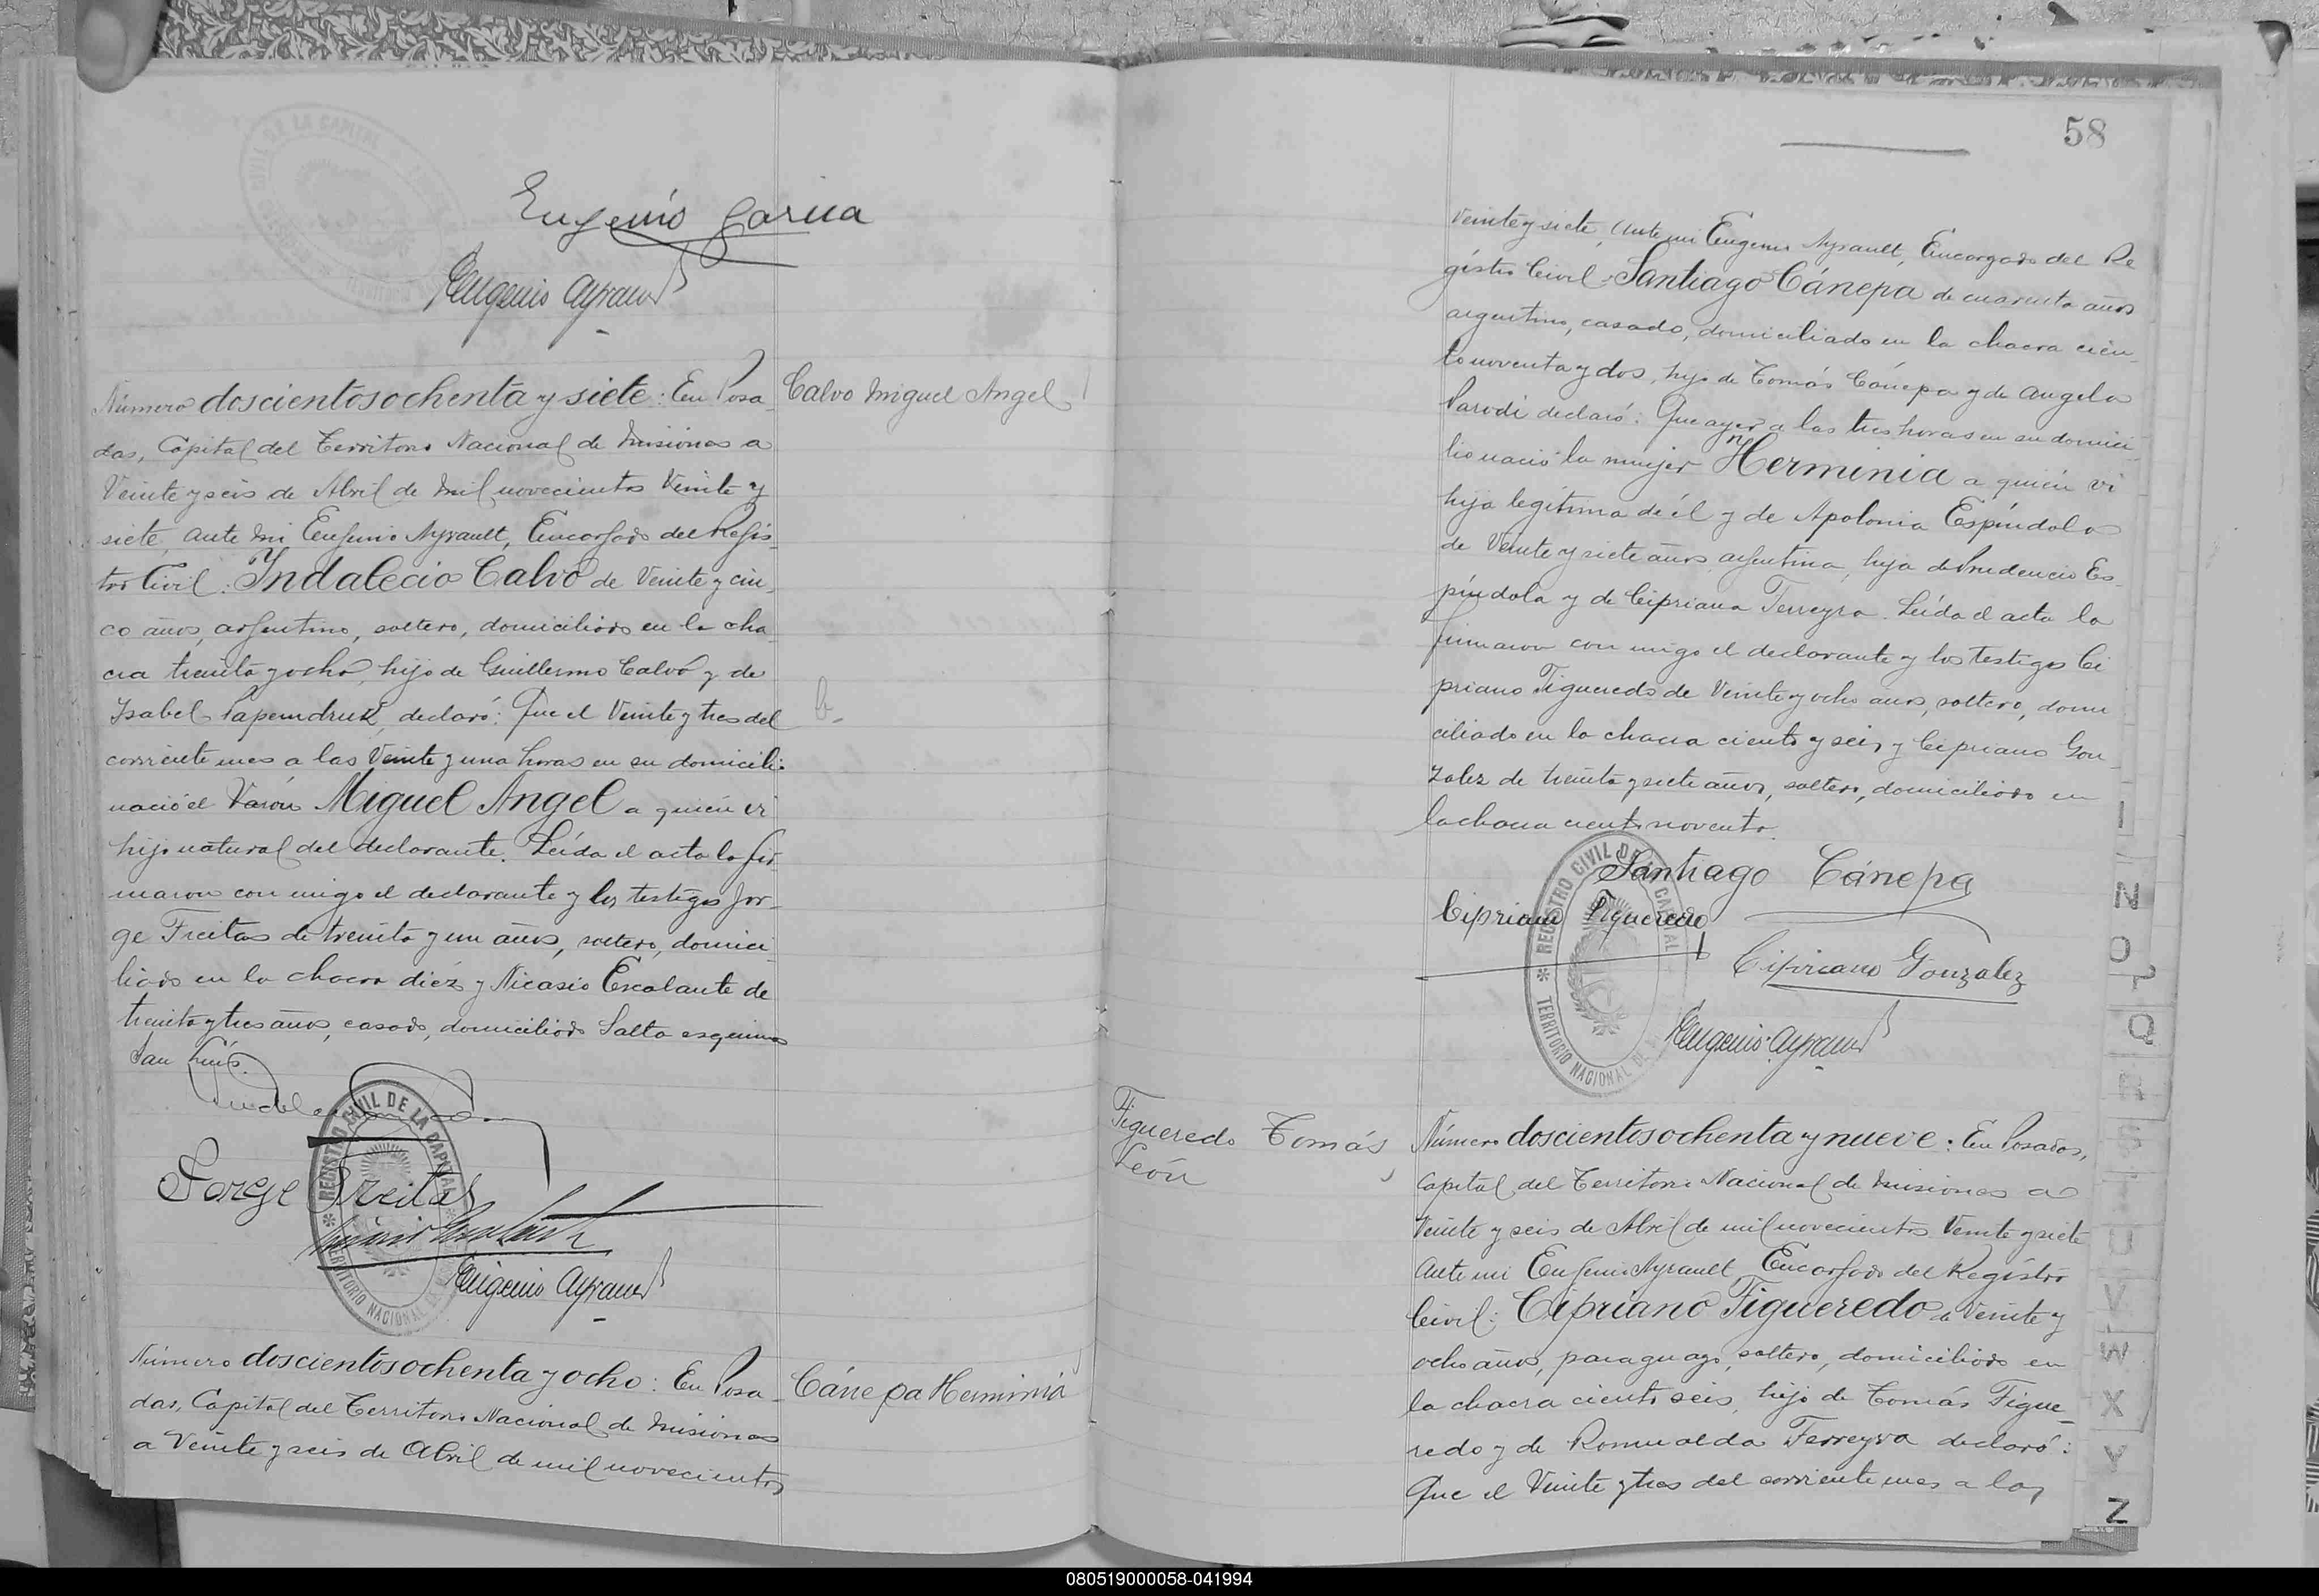 Eugenio Garcia
Eugenio Ayrault
Calvo Miguel Angel
Número doscientos ochenta y siete: En Posa-
das, Capital del Territorio Nacional de Misiones a
Veinte y seis de Abril de mil novecientos Veinte y
siete, ante mi Eugenio Ayrault, Encargado del Regis-
tro Civil: Indalecio Calvo de Veinte y cin-
co años, argentino, soltero, domiciliado en la cha-
cra treinta y ocho, hijo de Guillermo Calvo y de
Isabel declaró: Que el Veinte y tres del
corriente mes a las Veinte y una horas en su domicilio
nació el Varón Miguel Angel a quién vi
hijo natural del declarante. Leída el acta la fir-
maron con migo el declarante y los testigos Jor-
ge Freitas de treinta y un años, soltero, domici-
liado en la chacra diez y Nicasio Escalante de
treinta y tres años, casado, domiciliado Salta esquina
San Luís.
Jorge Freitas
Eugenio Ayrault
REGISTRO CIVIL DE LA CAPITAL
TERRITORIO NACIONAL DE
Cánepa Herminia
Número doscientos ochenta y ocho: En Posa-
das, Capital del Territorio Nacional de Misiones
a Veinte y seis de Abril de mil novecientos
58
Veinte y siete, ante mi Eugenio Ayrault, Encargado del Re
gistro Civil: Santiago Cánepa de cuarenta años
argentino, casado, domiciliado en la chacra cien-
to noventa y dos, hijo de Tomás Cánepa y de Angela
Parodi declaró: Que ayer a las tres horas en su domici-
lio nació la mujer Herminia a quién vi
hija legítima de él y de Apolonia Espíndola
de Veinte y siete años, argentina, hija de Prudencio Es-
píndola y de Cipriana Ferreyra. Leída el acta la
firmaron con migo el declarante y los testigos Ci
priano Figueredo de Veinte y ocho años, soltero, domi
ciliado en la chacra ciento y seis y Cipriano Gon-
zalez de treinta y siete años, soltero, domiciliado en
la chacra ciento noventa.
Santiago Cánepa
Cipriano Figueredo
Cipriano Gonzalez
Eugenio Ayrault
REGISTRO CIVIL DE LA CAPITAL
TERRITORIO NACIONAL DE
Figueredo Tomás
León
Número doscientos ochenta y nueve: En Posadas,
Capital del Territorio Nacional de Misiones a
Veinte y seis de Abril de mil novecientos Veinte y siete
ante mi Eugenio Ayrault Encargado del Registro
Civil: Cipriano Figueredo de Veinte y
ocho años, paraguayo, soltero, domiciliado en
la chacra ciento seis, hijo de Tomás Figue-
redo y de Romualda Ferreyra declaró:
Que el Veinte y tres del corriente mes a las
N
O
P
Q
R
S
T
U
V
W
X
Y
Z
080519000058-041994